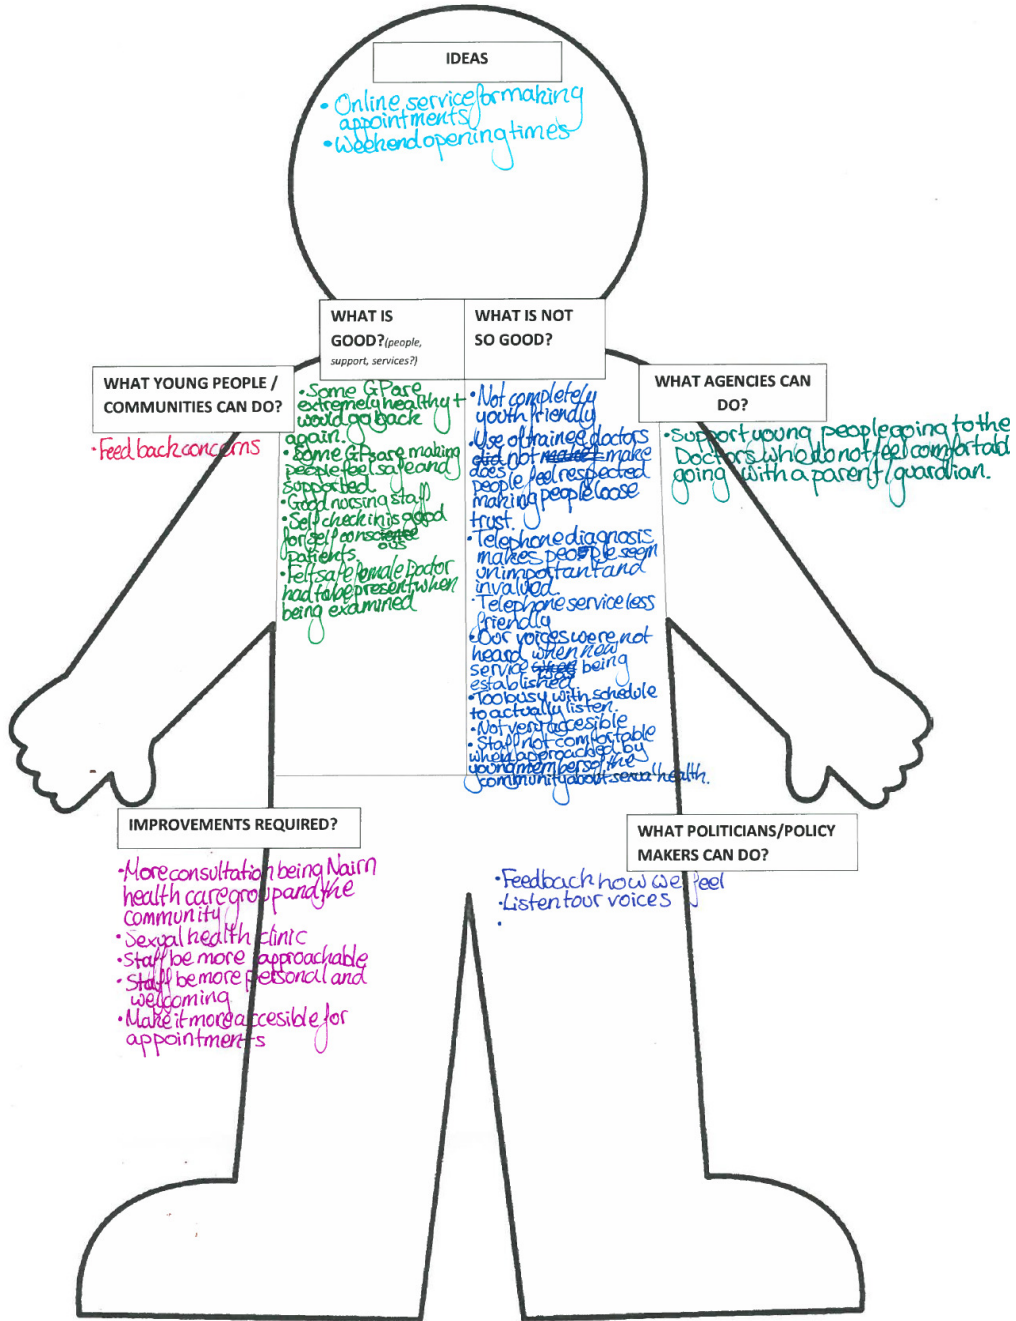 IDEAS
• Online service for making
appointments
• Weekend opening times
WHAT IS
GOOD?(people,
support, services?)
• Some GP are
extremely healthy +
would go back
again.
• Some GPs are making
people feel safe and
supported.
• Good nursing staff
• Self check in is good
for self conscious
patients
• Felt safe female Doctor
had to be present when
being examined
WHAT IS NOT
SO GOOD?
• Not completely
youth friendly
• Use of trainee doctors
did not make make
does
people feel respected
making people loose
trust.
• Telephone diagnosis
makes people seem
unimportant and
involved.
• Telephone service less
friendly
• Our voices were not
heard when new
service was being
established
• Too busy with schedule
to actually listen.
• Not very accesible
• Staff not comfortable
when approached by
young members of the
community about sexual health.
WHAT YOUNG PEOPLE /
COMMUNITIES CAN DO?
• Feed back concerns
WHAT AGENCIES CAN
DO?
• Support young people going to the
Doctors who do not feel comfortable
going with a parent/guardian.
IMPROVEMENTS REQUIRED?
• More consultation being Nairn
health care group and the
community
• Sexual health clinic
• Staff be more approachable
• Staff be more personal and
welcoming
• Make it more accesible for
appointments
WHAT POLITICIANS/POLICY
MAKERS CAN DO?
• Feedback how we feel
• Listen tour voices
•